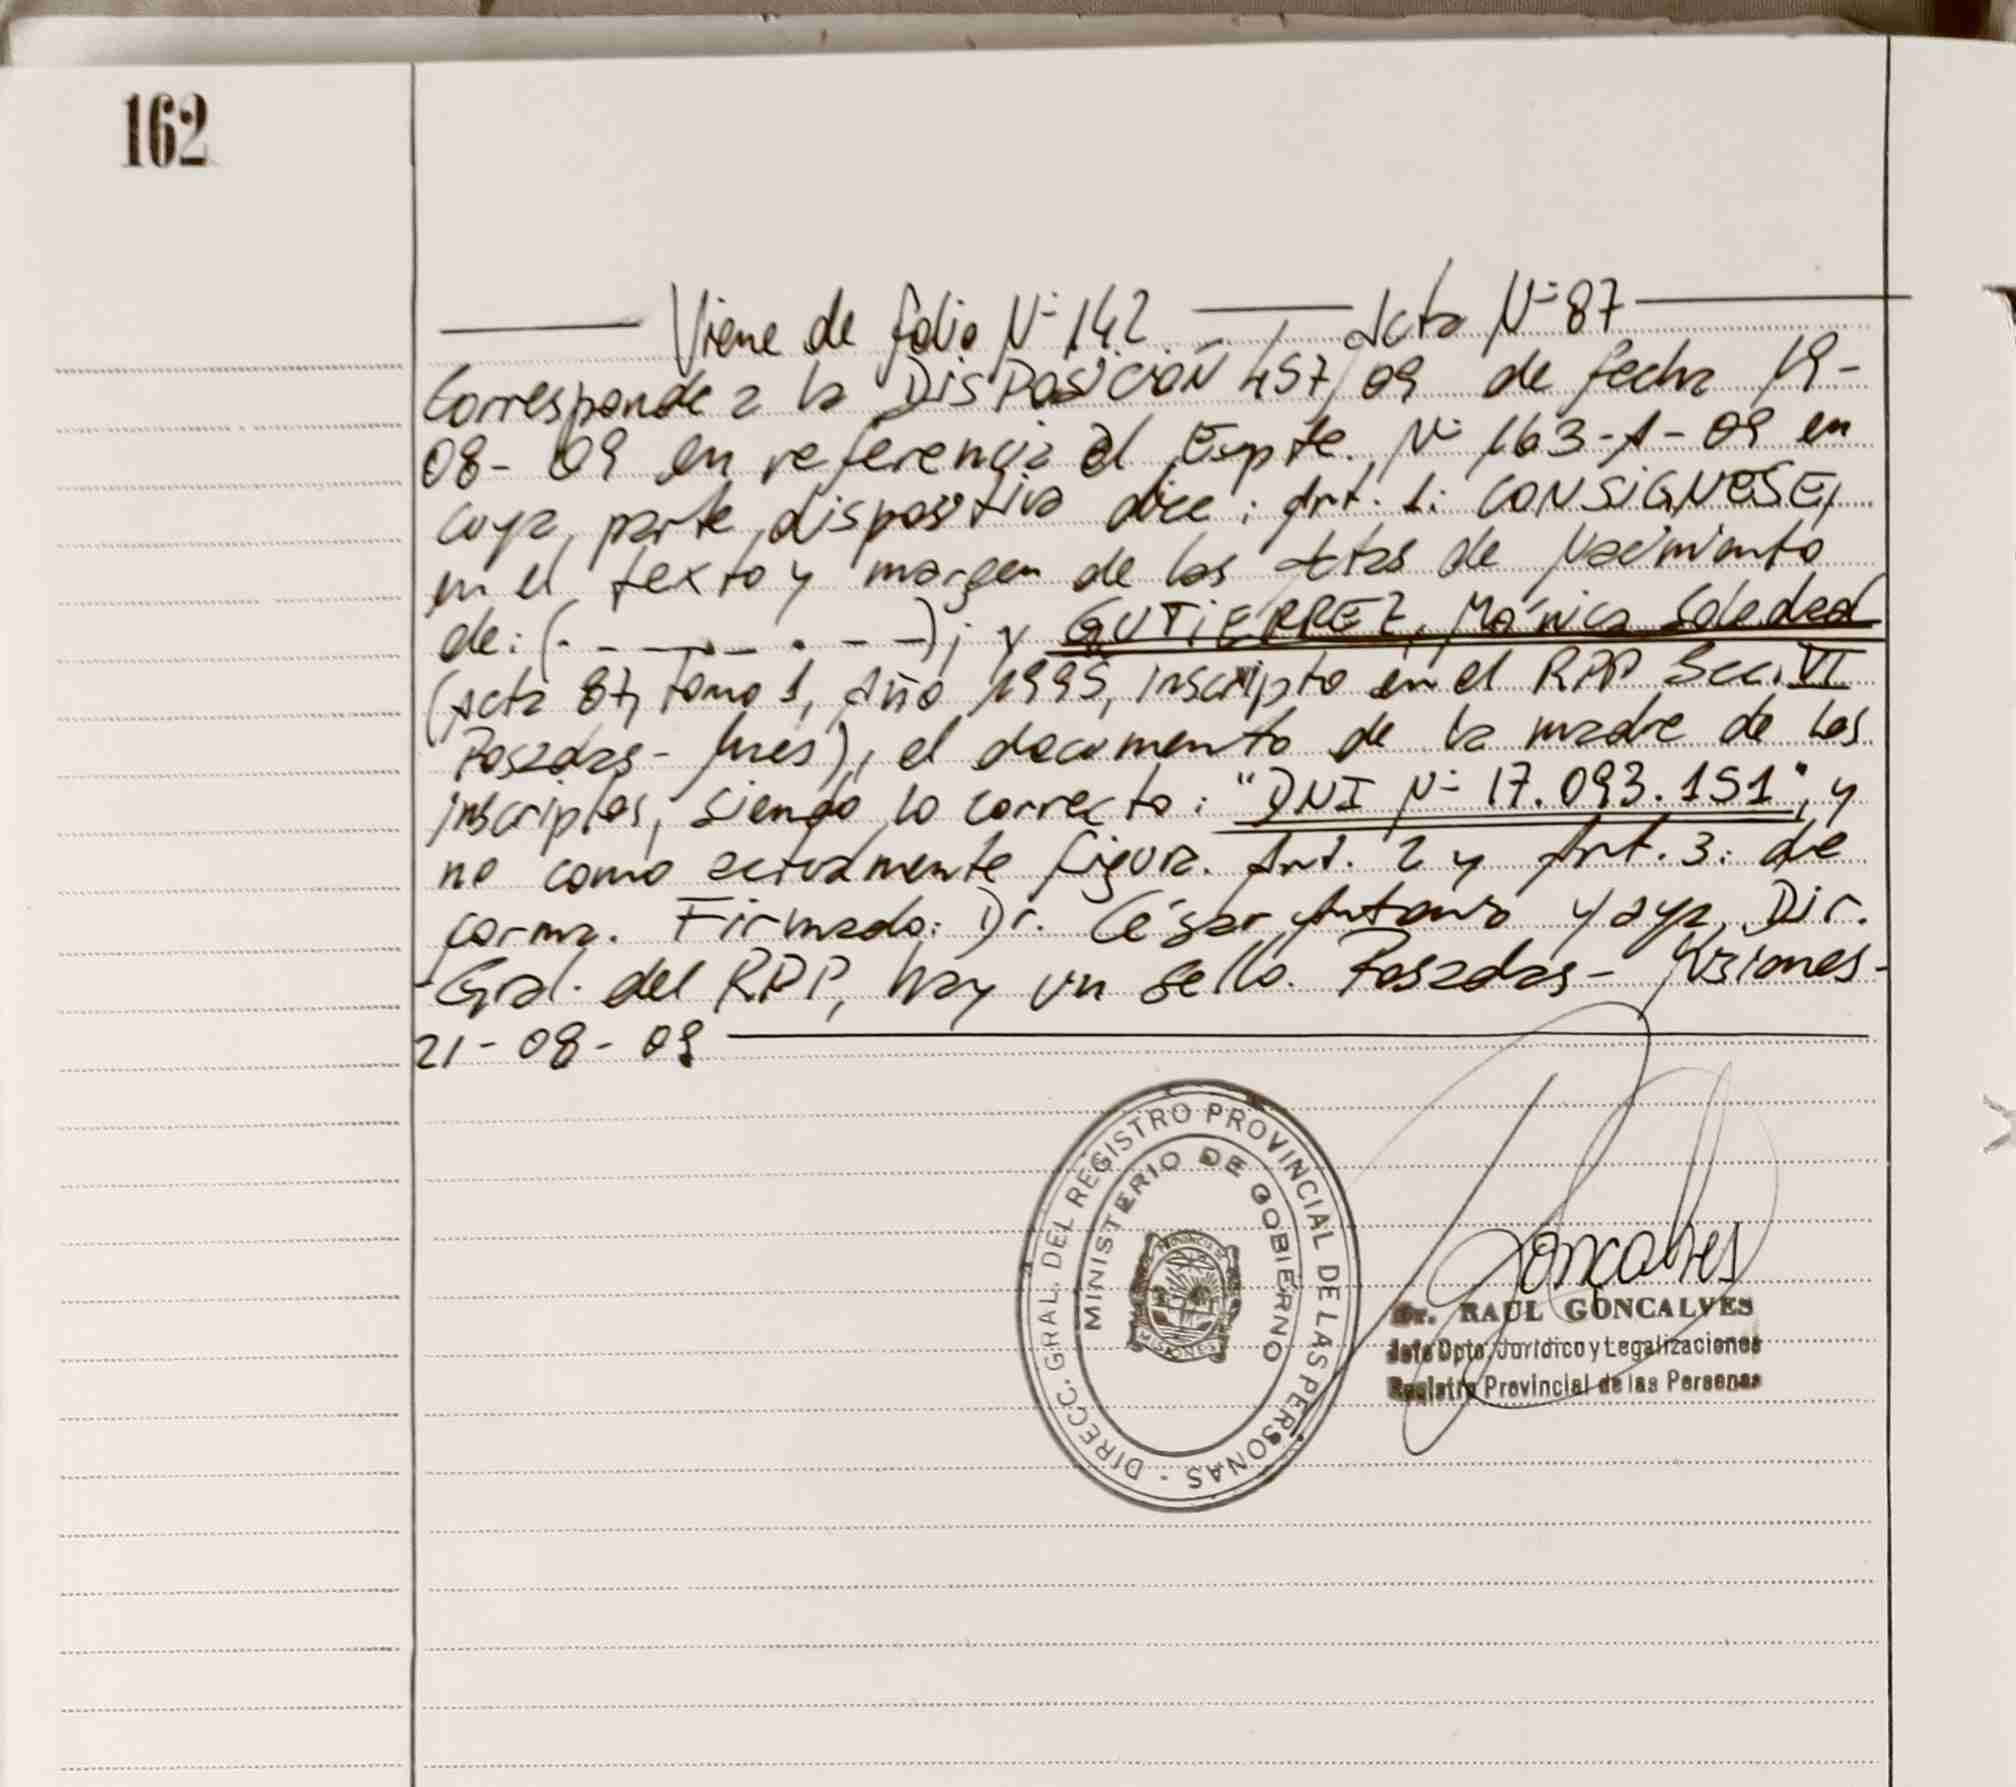 162
Viene de folio N° 142 Acta N° 87
Corresponde a la DISPOSICIÓN 457/09 de fecha 19-
08-09 en referencia al Expte. N° 163-A-09 en
cuya parte dispositiva dice: Art. 1: CONSIGNESE,
en el texto y margen de las actas de Nacimiento
de: (- - - - . - -); y GUTIERREZ, Mónica Soledad
(Acta 87, Tomo 1, Año 1995, inscripto en el RPP Secc. VI
Posadas - Mnes), el documento de la madre de los
inscriptos, siendo lo correcto: "DNI N° 17.093.151", y
no como activamente figura. Art. 2 y Art. 3: de
forma. Firmado: Dr. César Antonio Yaya, Dir.
Gral. del RPP, hay un sello. Posadas - Misiones-
21-08-09
DIRECC. GRAL. DEL REGISTRO PROVINCIAL DE LAS PERSONAS -
MINISTERIO DE GOBIERNO
PROVINCIA DE
MISIONES
Goncalves
Dr. RAUL GONCALVES
Jefe Dpto. Jurídico y Legalizaciones
Registro Provincial de las Personas